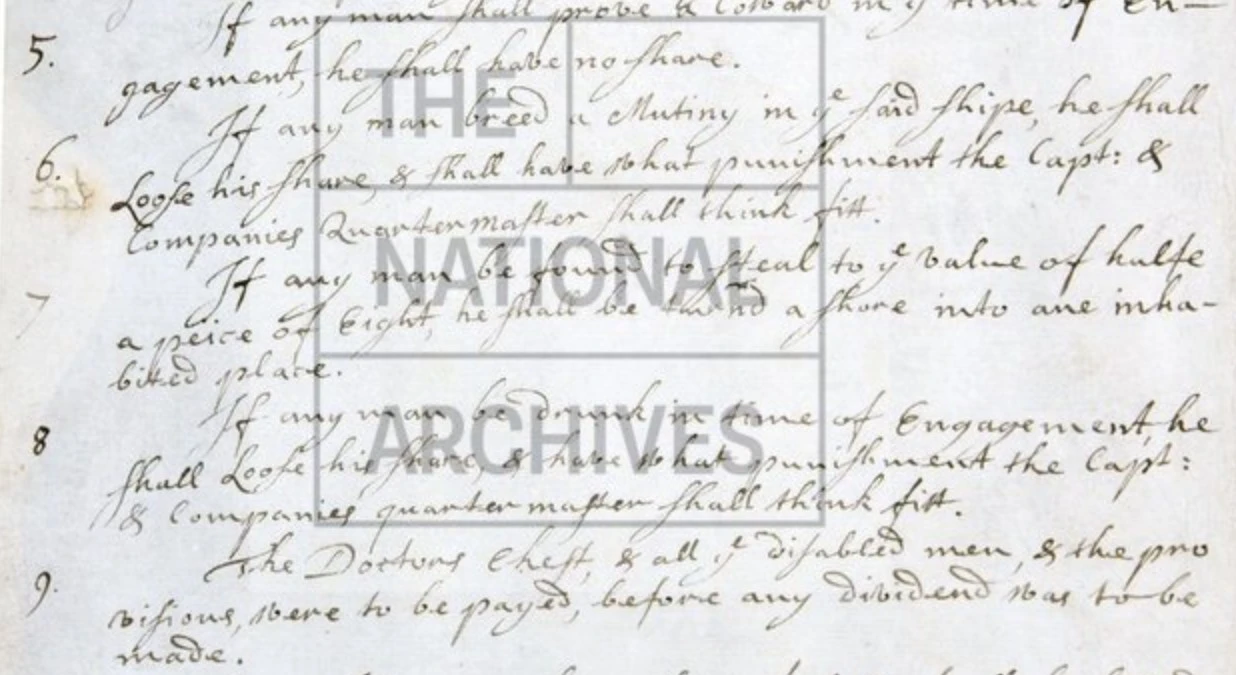 If any man shall prove a Coward in yᵉ time of En-
5. gagement, he shall have no share.
If any man breed a Mutiny in yᵉ said shipe, he shall
6. Loose his share, & shall have what punishment the Capt: &
Companies Quartermaster shall think fitt.
If any man be found to steal to yᵉ value of halfe
7 a peice of Eight, he shall be turnd a shore into ane inha-
bited place.
If any man be drunk in time of Engagement, he
8 shall Loose his share, & have what punishment the Capt:
& Companies quartermaster shall think fitt.
The Doctors Chest, & all yᵉ disabled men, & the pro
9. visions, were to be payed, before any dividend was to be
made.
THE
NATIONAL
ARCHIVES